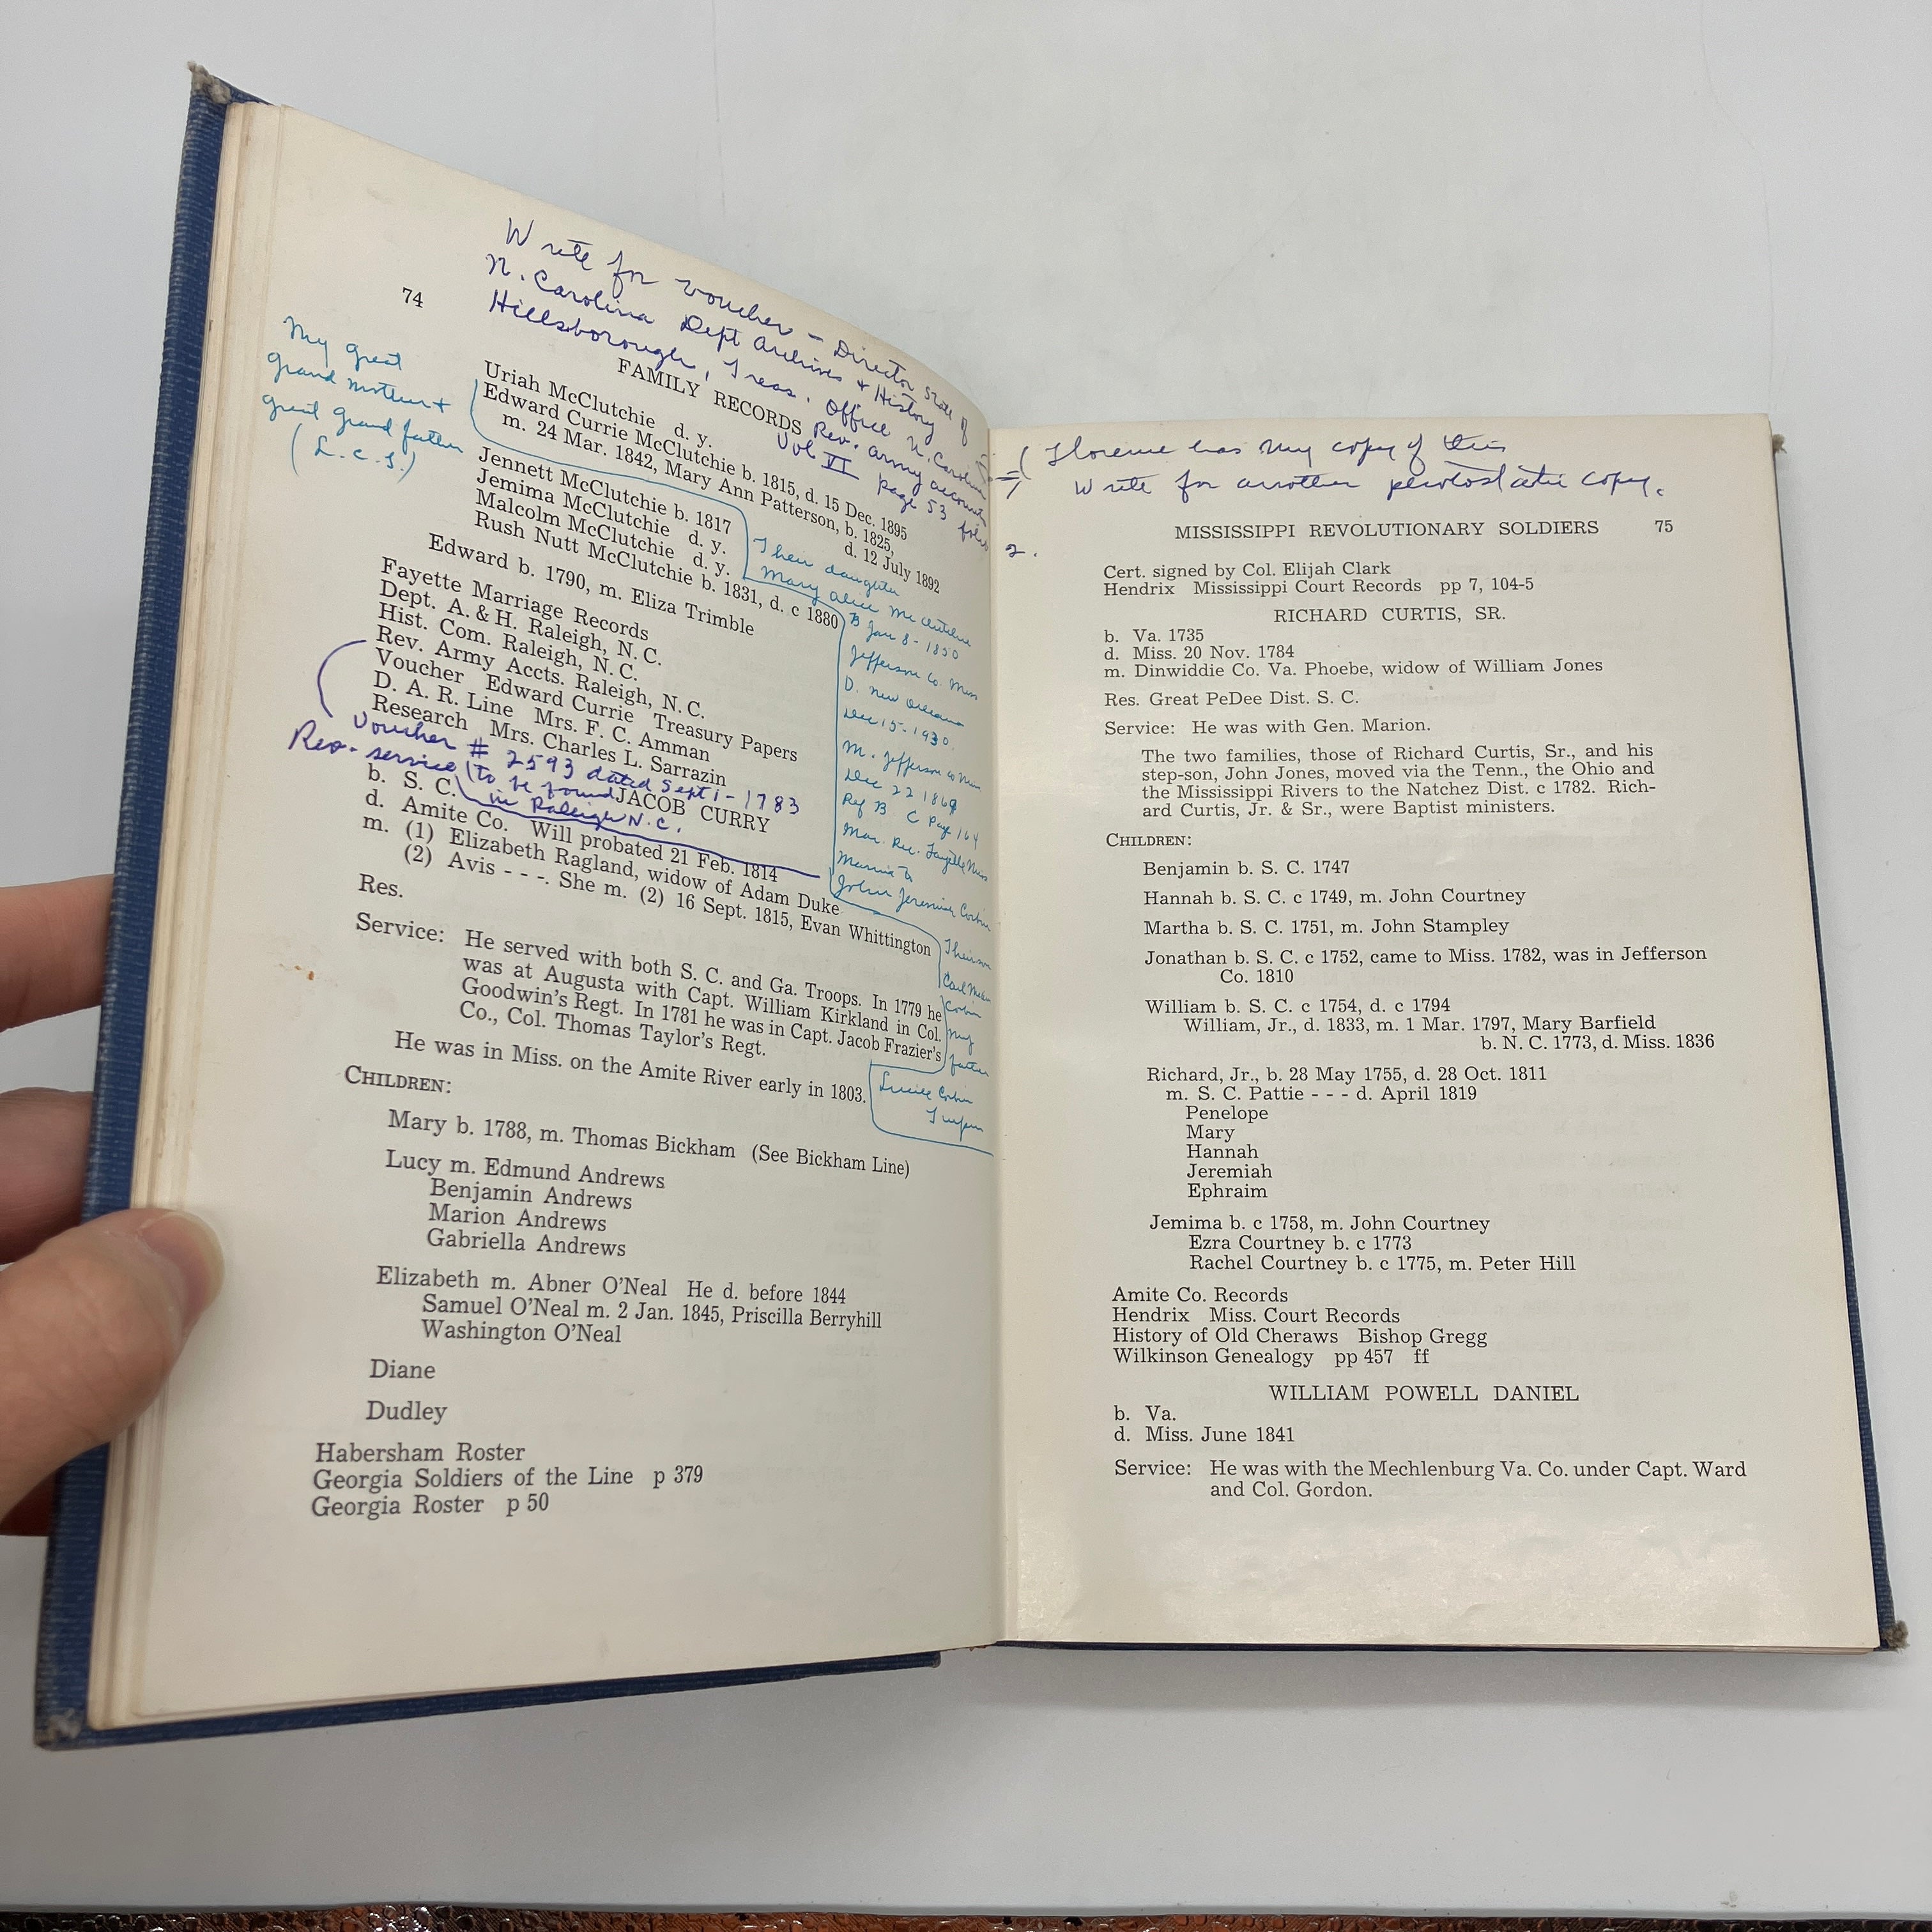 Write for voucher – Director State of
N. Carolina Dept Archives & History
Hillsborough, Treas. Office N. Carolina
Rev. army accounts
Vol VI page 53 folio
2.
74
FAMILY RECORDS
My great
grand mother +
great grand father
(L.C.T.)
Uriah McClutchie d. y.
Edward Currie McClutchie b. 1815, d. 15 Dec. 1895
m. 24 Mar. 1842, Mary Ann Patterson, b. 1825,
d. 12 July 1892
Jennett McClutchie b. 1817
Jemima McClutchie d. y.
Malcolm McClutchie d. y.
Rush Nutt McClutchie b. 1831, d. c 1880
Edward b. 1790, m. Eliza Trimble
Fayette Marriage Records
Dept. A. & H. Raleigh, N. C.
Hist. Com. Raleigh, N. C.
Rev. Army Accts. Raleigh, N. C.
Voucher Edward Currie Treasury Papers
D. A. R. Line Mrs. F. C. Amman
Research Mrs. Charles L. Sarrazin
Voucher # 2593 dated Sept 1 - 1783
Rev. service to be found
in Raleigh N.C.
Their daughter
Mary Alice McClutchie
B Jan 8 - 1850
Jefferson Co. Miss
D. New Orleans
Dec 15 - 1930.
M. Jefferson Co Miss
Dec 22 1869
Ref B C Page 164
Mar. Rec. Fayette Miss
Married to
John Jeremiah Corbin
Their son
Carl
Corbin
my
father
Lucile Corbin
JACOB CURRY
b. S. C.
d. Amite Co. Will probated 21 Feb. 1814
m. (1) Elizabeth Ragland, widow of Adam Duke
(2) Avis - - -. She m. (2) 16 Sept. 1815, Evan Whittington
Res.
Service: He served with both S. C. and Ga. Troops. In 1779 he
was at Augusta with Capt. William Kirkland in Col.
Goodwin's Regt. In 1781 he was in Capt. Jacob Frazier's
Co., Col. Thomas Taylor's Regt.
He was in Miss. on the Amite River early in 1803.
CHILDREN:
Mary b. 1788, m. Thomas Bickham (See Bickham Line)
Lucy m. Edmund Andrews
Benjamin Andrews
Marion Andrews
Gabriella Andrews
Elizabeth m. Abner O'Neal He d. before 1844
Samuel O'Neal m. 2 Jan. 1845, Priscilla Berryhill
Washington O'Neal
Diane
Dudley
Habersham Roster
Georgia Soldiers of the Line p 379
Georgia Roster p 50
Florence has my copy of this
Write for another photostatic copy.
MISSISSIPPI REVOLUTIONARY SOLDIERS 75
Cert. signed by Col. Elijah Clark
Hendrix Mississippi Court Records pp 7, 104-5
RICHARD CURTIS, SR.
b. Va. 1735
d. Miss. 20 Nov. 1784
m. Dinwiddie Co. Va. Phoebe, widow of William Jones
Res. Great PeDee Dist. S. C.
Service: He was with Gen. Marion.
The two families, those of Richard Curtis, Sr., and his
step-son, John Jones, moved via the Tenn., the Ohio and
the Mississippi Rivers to the Natchez Dist. c 1782. Rich-
ard Curtis, Jr. & Sr., were Baptist ministers.
CHILDREN:
Benjamin b. S. C. 1747
Hannah b. S. C. c 1749, m. John Courtney
Martha b. S. C. 1751, m. John Stampley
Jonathan b. S. C. c 1752, came to Miss. 1782, was in Jefferson
Co. 1810
William b. S. C. c 1754, d. c 1794
William, Jr., d. 1833, m. 1 Mar. 1797, Mary Barfield
b. N. C. 1773, d. Miss. 1836
Richard, Jr., b. 28 May 1755, d. 28 Oct. 1811
m. S. C. Pattie - - - d. April 1819
Penelope
Mary
Hannah
Jeremiah
Ephraim
Jemima b. c 1758, m. John Courtney
Ezra Courtney b. c 1773
Rachel Courtney b. c 1775, m. Peter Hill
Amite Co. Records
Hendrix Miss. Court Records
History of Old Cheraws Bishop Gregg
Wilkinson Genealogy pp 457 ff
WILLIAM POWELL DANIEL
b. Va.
d. Miss. June 1841
Service: He was with the Mechlenburg Va. Co. under Capt. Ward
and Col. Gordon.